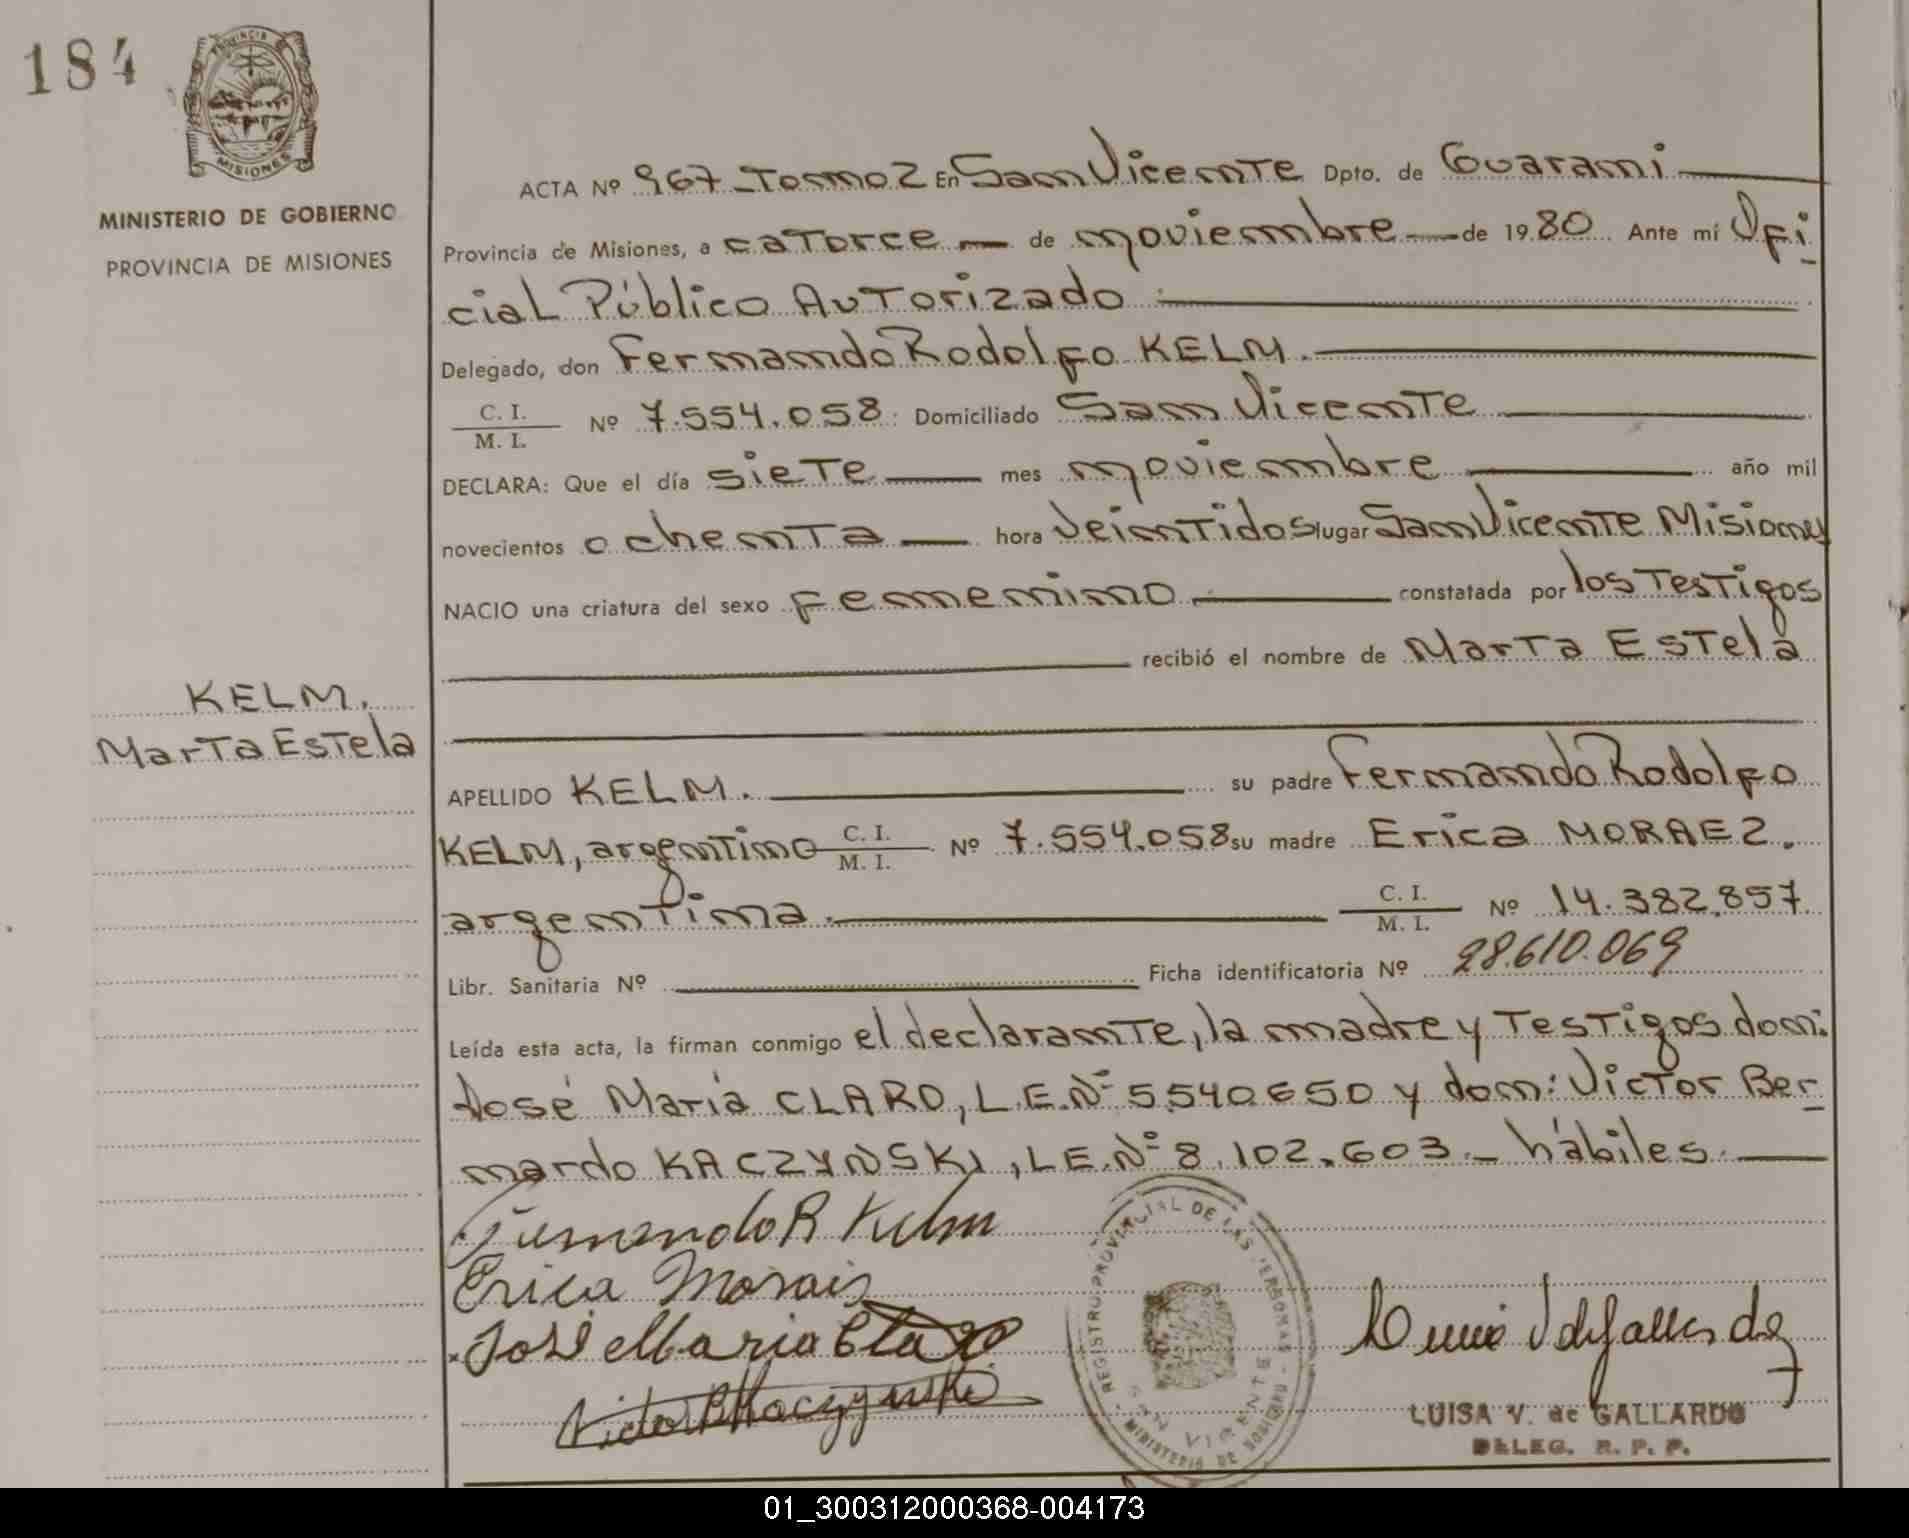 184
PROVINCIA DE
MISIONES
MINISTERIO DE GOBIERNO
PROVINCIA DE MISIONES
KELM.
Marta Estela
ACTA Nº 967 Tomo 2 En San Vicente Dpto. de Guarani
Provincia de Misiones, a catorce de noviembre de 1980 Ante mí Ofi
cial Público Autorizado
Delegado, don Fernando Rodolfo KELM.
C. I.
M. I. Nº 7.554.058 Domiciliado San Vicente
DECLARA: Que el día siete mes noviembre año mil
novecientos ochenta hora veintidos lugar San Vicente Misiones
NACIO una criatura del sexo femenino constatada por los testigos
recibió el nombre de Marta Estela
APELLIDO KELM. su padre Fernando Rodolfo
KELM, argentino C. I. M. I. Nº 7.554.058 su madre Erica MORAEZ.
argentina. C. I. M. I. Nº 14.382.857
Libr. Sanitaria Nº Ficha identificatoria Nº 28.610.069
Leída esta acta, la firman conmigo el declarante, la madre y testigos don:
José María CLARO, L.E.Nº 5.540.650 y don: Victor Ber
nardo KACZYNSKI, L.E.Nº 8.102.603.- hábiles.
Fernando R Kelm
Erica Morais
José Maria Claro
Victor B Kaczynski
REGISTRO PROVINCIAL DE LAS PERSONAS
SAN VICENTE
MINISTERIO DE GOBIERNO
LUISA V. de GALLARDO
DELEG. R. P. P.
01_300312000368-004173